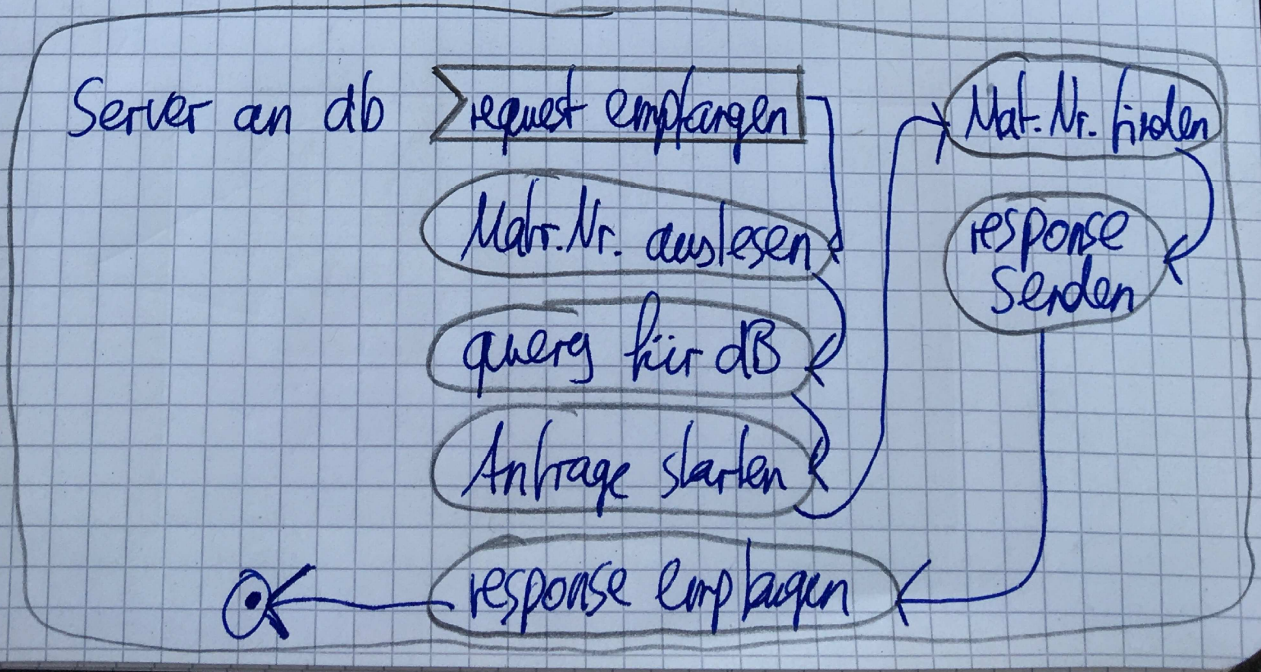 Server an db
request empfangen
Matr.Nr. auslesen
query für dB
Anfrage starten
Mat.Nr. finden
response
senden
response empfangen